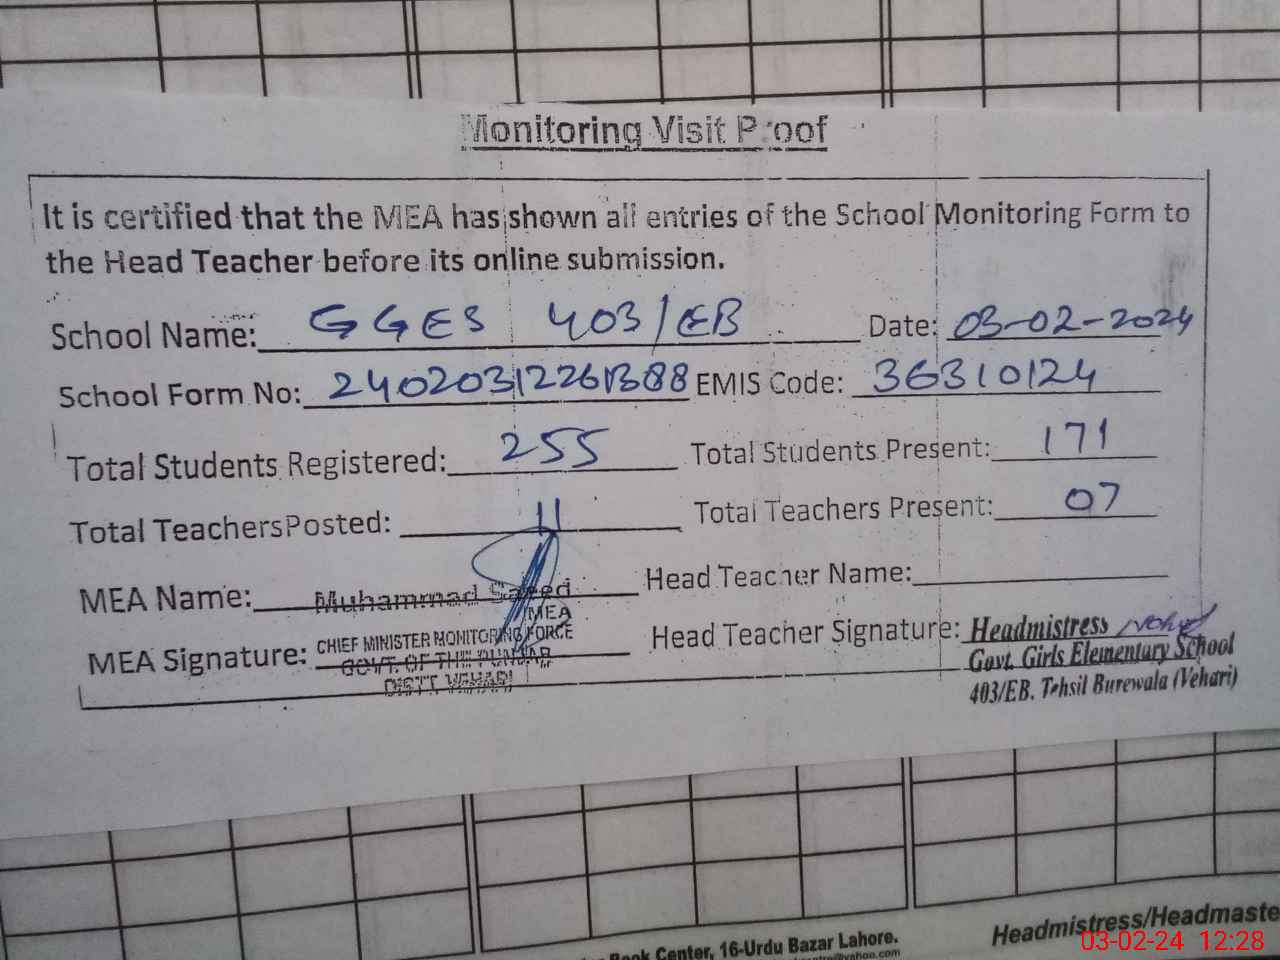 Monitoring Visit Proof
It is certified that the MEA has shown all entries of the School Monitoring Form to
the Head Teacher before its online submission.
School Name: GGES 403/EB Date: 03-02-2024
School Form No: 24020312261388 EMIS Code: 36310124
Total Students Registered: 255 Total Students Present: 171
Total TeachersPosted: 11 Total Teachers Present: 07
MEA Name: Muhammad Saeed Head Teacher Name:
MEA
MEA Signature: CHIEF MINISTER MONITORING FORCE
GOVT. OF THE PUNJAB
DISTT. VEHARI
Head Teacher Signature: Headmistress
Govt. Girls Elementary School
403/EB. Tehsil Burewala (Vehari)
Book Center, 16-Urdu Bazar Lahore.
@yahoo.com
Headmistress/Headmaste
03-02-24 12:28